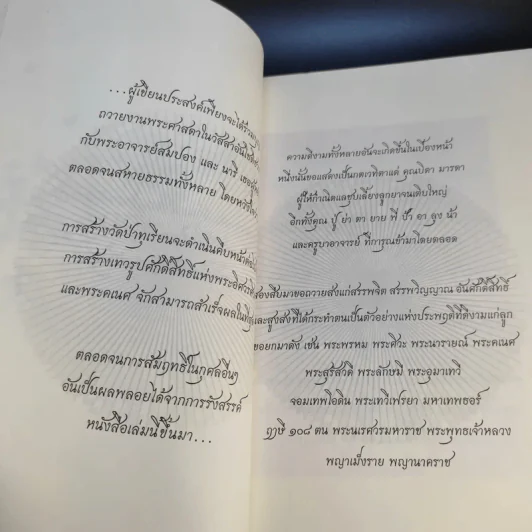 ...ผู้เขียนประสงค์เพียงจะได้ร่วม
ถวายงานพระศาสดาในวัสสา
กับพระอาจารย์สมปอง และ นารี
ตลอดจนสหายธรรมทั้งหลาย
การสร้างวัดป่าทุเรียนจะดำเนินคืบหน้า
การสร้างเทวรูปศักดิ์สิทธิ์แห่งพระอิศวร
และพระคเณศ จักสามารถสำเร็จผล
ตลอดจนการสัมฤทธิ์ในกุศลอื่นๆ
อันเป็นผลพลอยได้จากการรังสรรค์
หนังสือเล่มนี้ขึ้นมา...
ความดีงามทั้งหลายอันจะเกิดขึ้นในเบื้องหน้า
หนึ่งนั้นขอแสดงเป็นกตเวทิตาแด่ คุณบิดา มารดา
ผู้ให้กำเนิดและชุบเลี้ยงลูกยาจนเติบใหญ่
อีกทั้งคุณ ปู่ ย่า ตา ยาย พี่ ป้า อา ลุง น้า
และครูบาอาจารย์ ที่การุณข้ามาโดยตลอด
สองสืบมาขอถวายสิ่งแก่สรรพจิต สรรพวิญญาณ อันศักดิ์สิทธิ์
และสูงส่งที่ได้กระทำตนเป็นตัวอย่างแห่งประพฤติที่ดีงามแก่ลูก
ขอยกมาดัง เช่น พระพรหม พระศิวะ พระนารายณ์ พระคเณศ
พระสุรัสวดี พระลักษมี พระอุมาเทวี
จอมเทพโอดิน พระเทวีเฟรยา มหาเทพธอร์
ฤาษี ๑๐๘ ตน พระนเรศวรมหาราช พระพุทธเจ้าหลวง
พญาเม็งราย พญานาคราช